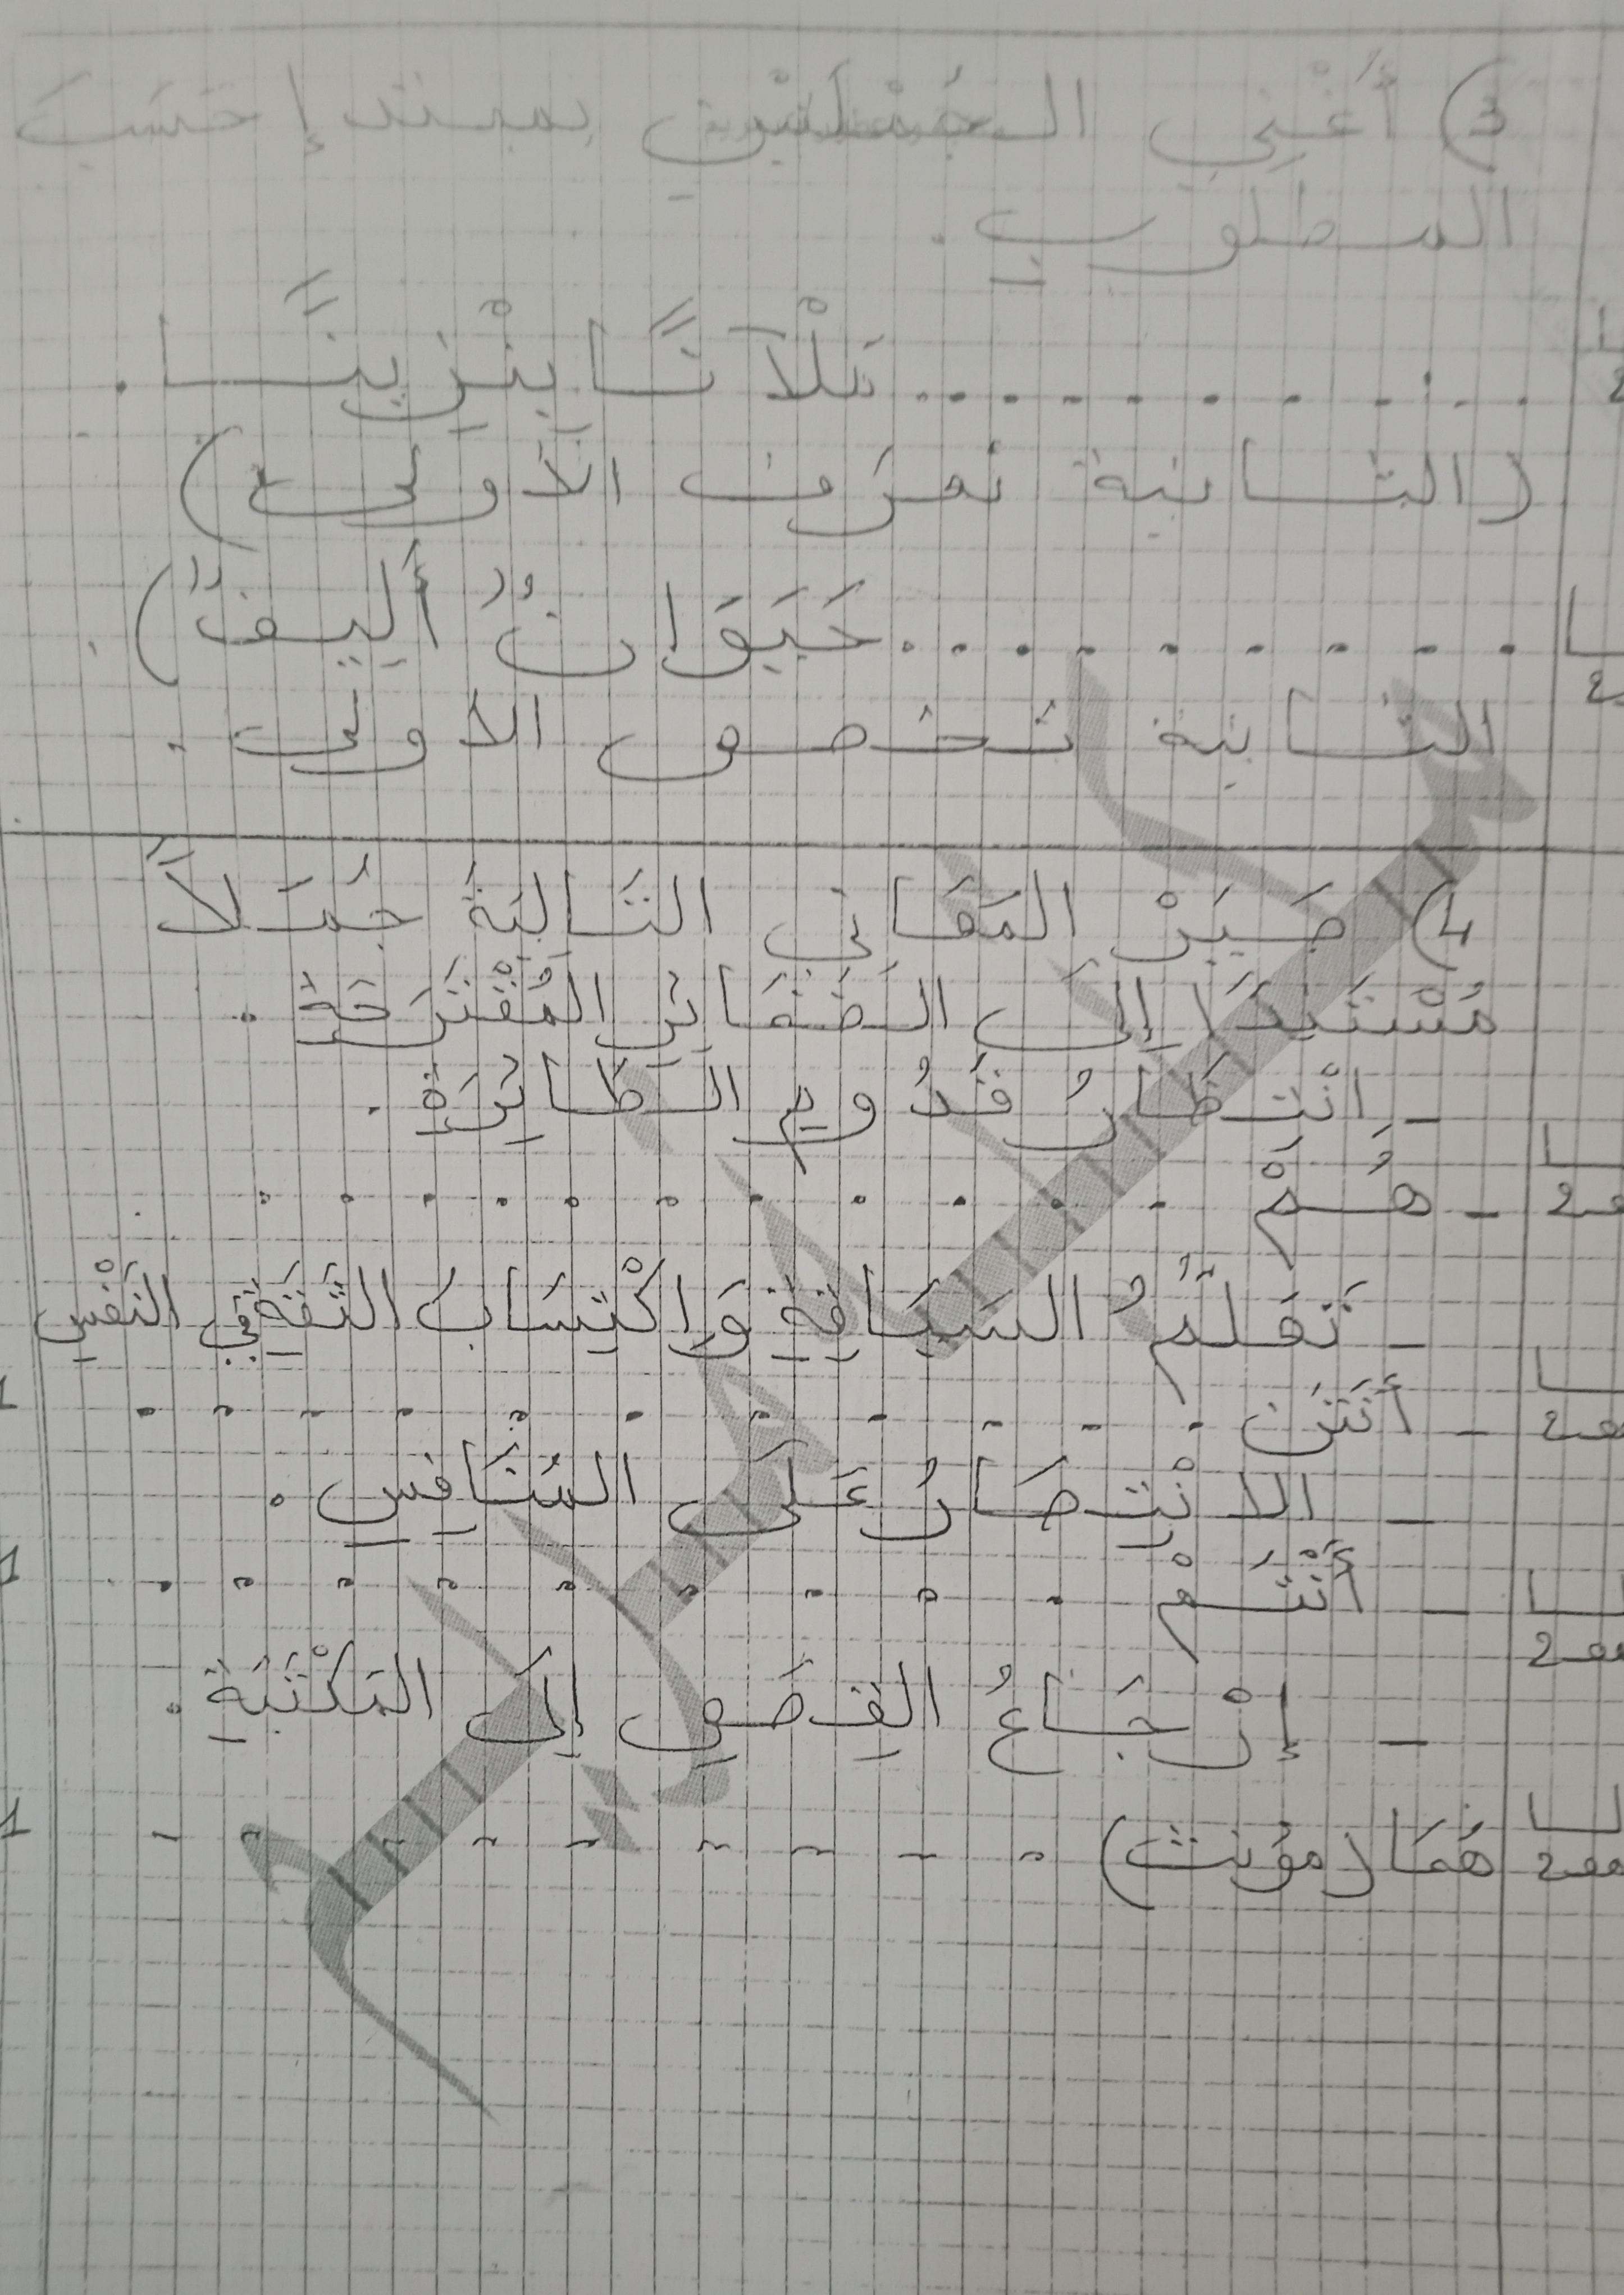 3) أَغْنِي الجُمْلَتَيْنِ بمبتدإ حَسَبَ
المطلوب.
.......... مَلْآنًا بِنْزِينًا.
(الثانية تعرّف الأولى)
.......... حَيَوَانٌ أَلِيفٌ).
الثانية تخصص الأولى.
4) صَيِّرْ المَعَانِي التَّالِيَةَ جُمَلاً
مُسْتَنِدًا إِلَى الضَّمَائِرِ المُقْتَرَحَةِ.
- انْتِظَارُ قُدُومِ الطَّائِرَةِ.
- هُمْ ..........
- تَعَلُّمُ السِّبَاحَةِ وَاكْتِسَابُ الثِّقَةِ فِي النَّفْسِ
- أَنْتُنَّ ..........
- الانْتِصَارُ عَلَى المُنَافِسِ.
- أَنْتُمْ ..........
- إرْجَاعُ القِصَصِ إِلَى المَكْتَبَةِ.
هُمَا (مؤنث) ..........